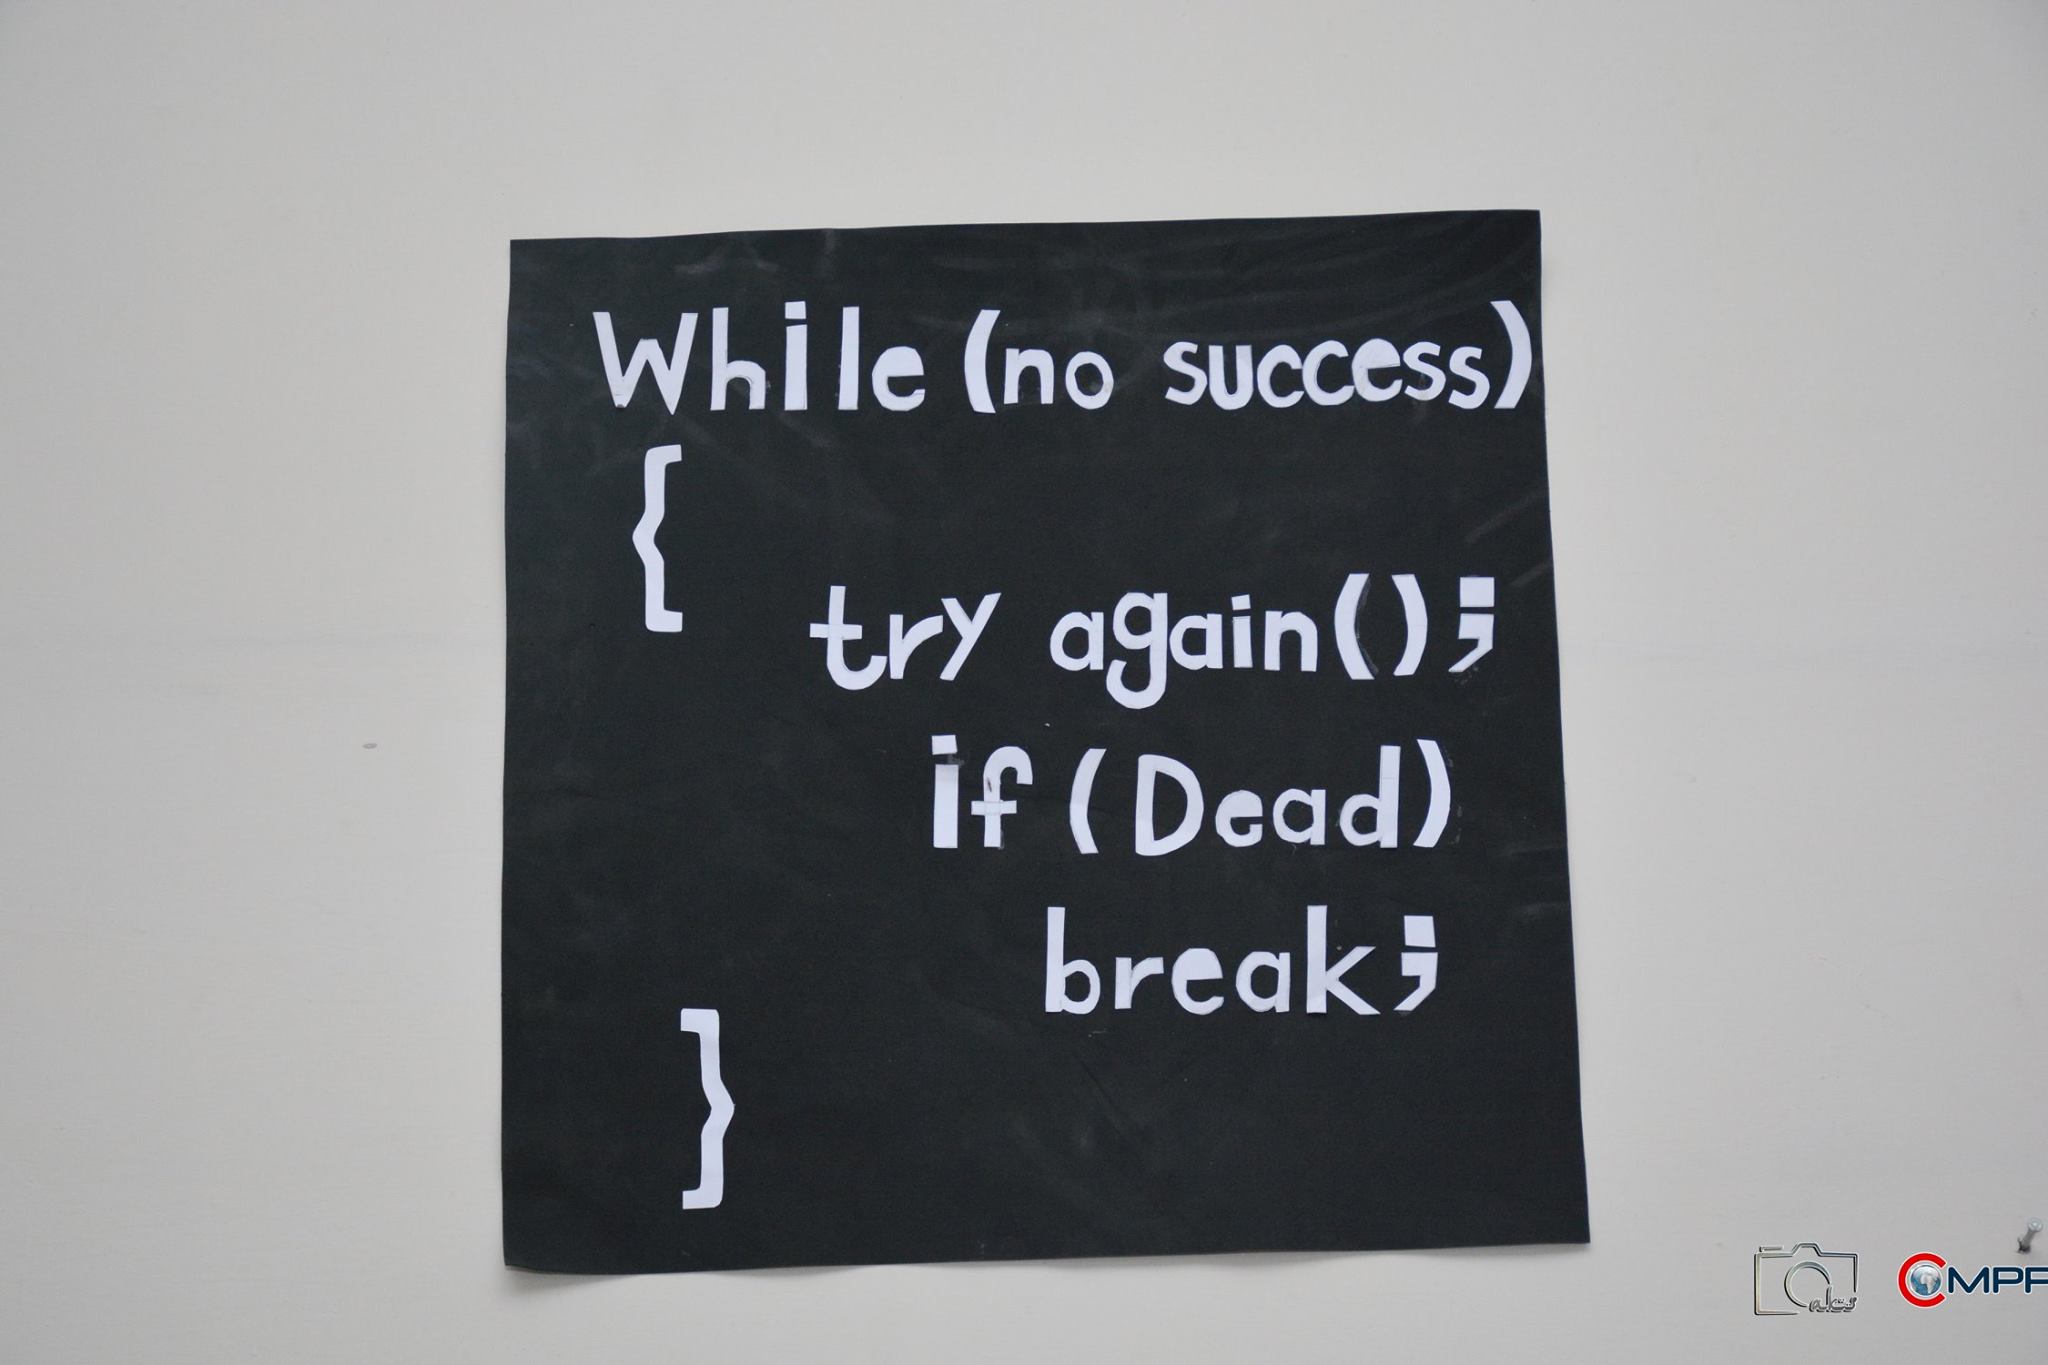 While (no success)
{
try again();
if (Dead)
break;
}
CMPF